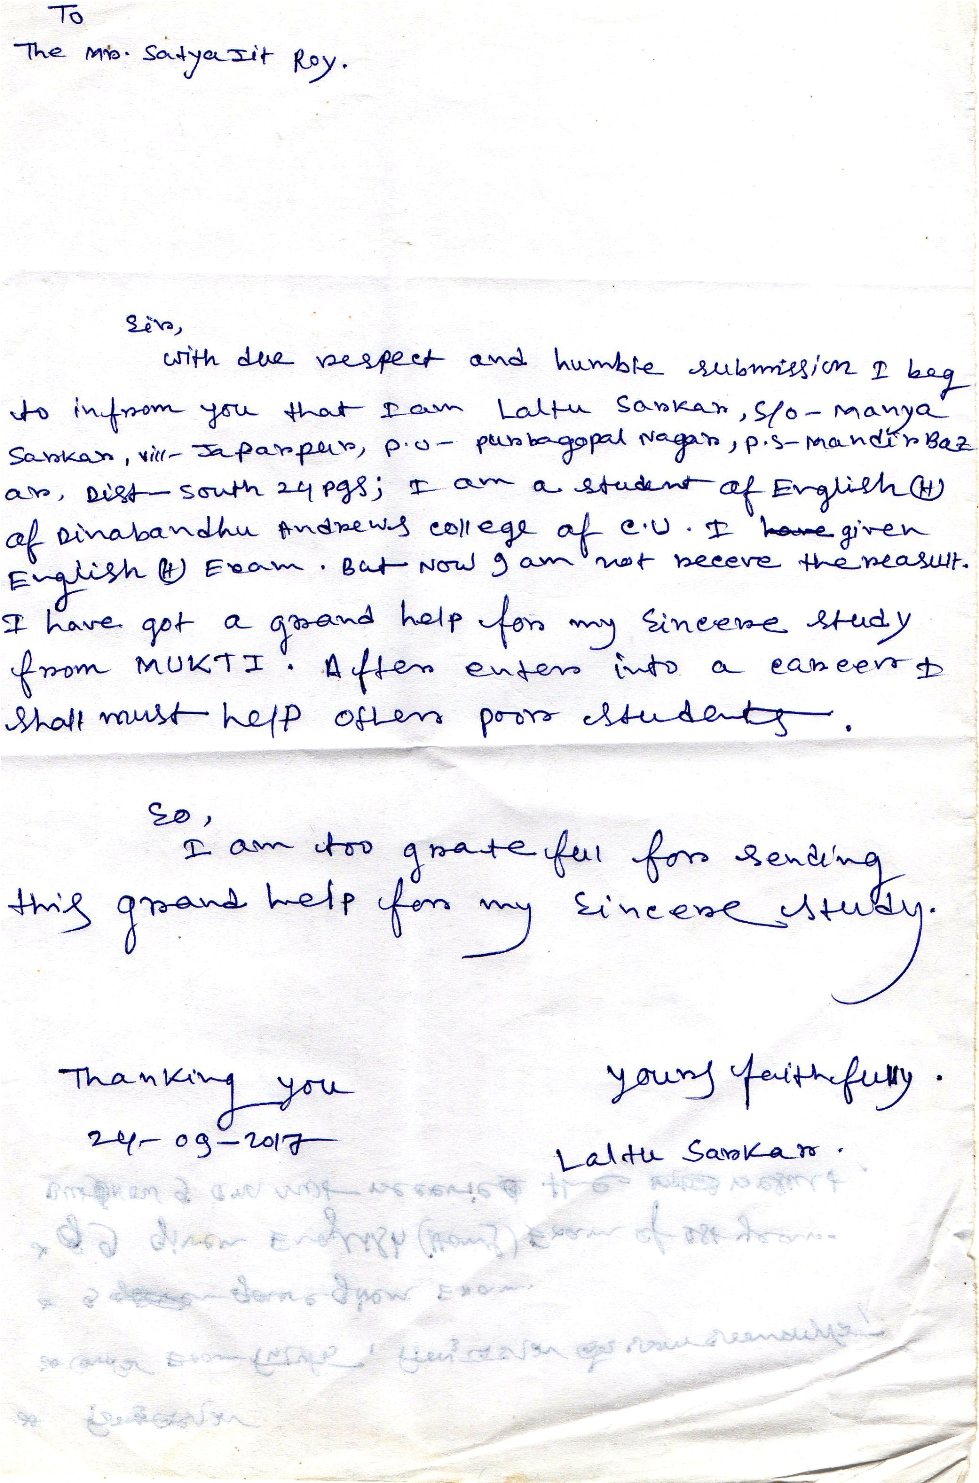 To
The Mr. Satyajit Roy.
Sir,
with due respect and humble submission I beg
to infrom you that I am Laltu Sarkar, S/o - Manya
Sarkar, vill- Japarpur, p.o - purbagopal Nagar, p.s- Mandir Baz
ar, Dist - South 24 pgs; I am a student of English (H)
of Dinabandhu Andrews college of C.U. I have given
English (H) Exam. But Now I am not receve the reasult.
I have got a grand help for my sincere study
from MUKTI. After enter into a career I
shall must help others poor students.
So,
I am too grateful for sending
this grand help for my sincere study.
Thanking you
yours faithfully.
24-09-2017
Laltu Sarkar.